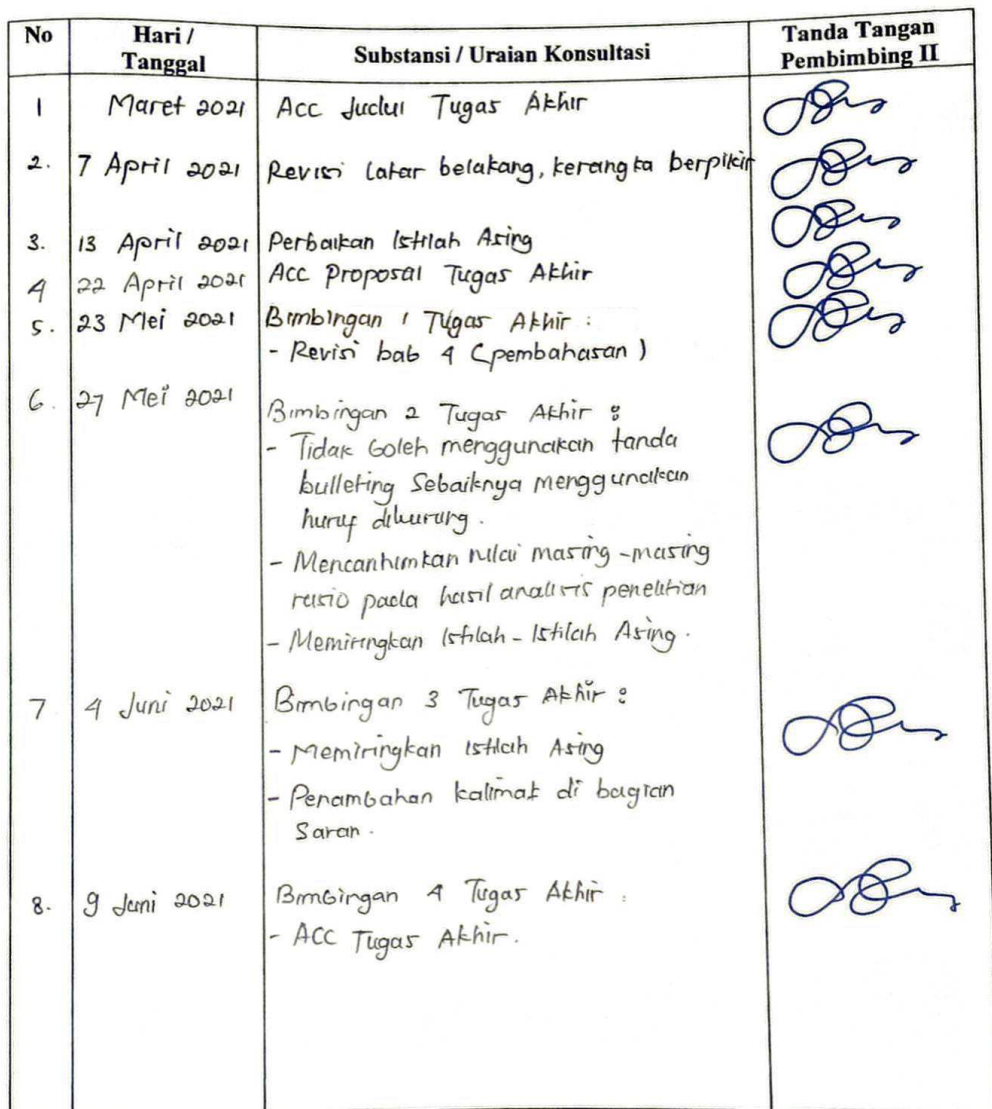 No Hari / Tanggal Substansi / Uraian Konsultasi Tanda Tangan Pembimbing II
1 Maret 2021 Acc Judul Tugas Akhir
2. 7 April 2021 Revisi latar belakang, kerangka berpikir
3. 13 April 2021 Perbaikan Istilah Asing
4 22 April 2021 Acc Proposal Tugas Akhir
5. 23 Mei 2021 Bimbingan 1 Tugas Akhir :
- Revisi bab 4 (pembahasan)
6. 27 Mei 2021 Bimbingan 2 Tugas Akhir :
- Tidak boleh menggunakan tanda
bulleting Sebaiknya menggunakan
huruf dikurung.
- Mencantumkan nilai masing-masing
rasio pada hasil analisis penelitian
- Memiringkan Istilah-Istilah Asing.
7 4 Juni 2021 Bimbingan 3 Tugas Akhir :
- Memiringkan istilah Asing
- Penambahan kalimat di bagian
Saran.
8. 9 Juni 2021 Bimbingan 4 Tugas Akhir :
- ACC Tugas Akhir.